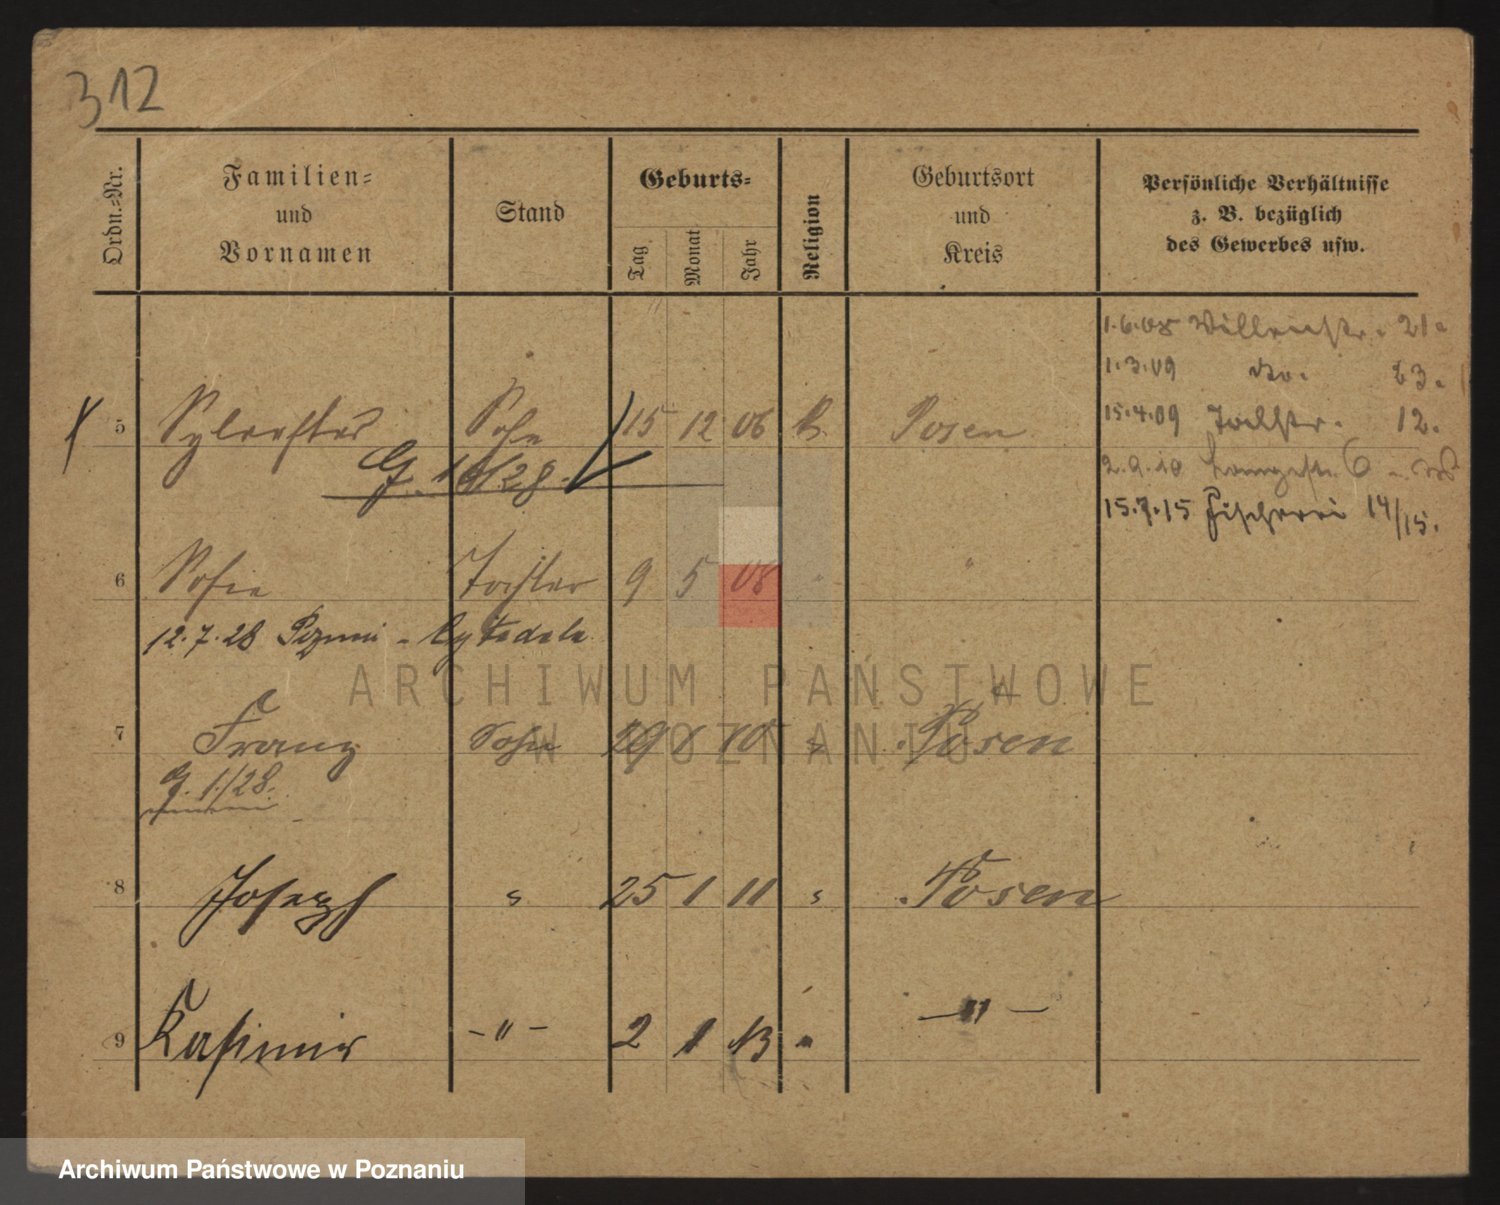 312
Ordn.-Nr.
Familien-
und
Vornamen
Stand
Geburts-
Tag
Monat
Jahr
Religion
Geburtsort
und
Kreis
Persönliche Verhältnisse
z. B. bezüglich
des Gewerbes usw.
1.6.08 21.
1.3.09 do. 23.
15.4.09 12.
2.9.10 Langestr. 6
15.7.15 Fischerei 14/15.
5 Sylvester Sohn 15 12 06 k. Posen
G. 1/28.
6 Sofie Tochter 9 5 08 " "
12.7.28 Poznań - Cytadela
7 Franz Sohn 29 1 10 " Posen
G. 1./28.
8 Joseph " 25 1 11 " Posen
9 Kasimir -"- 2 1 13 " -"-
ARCHIWUM PAŃSTWOWE
W POZNANIU
Archiwum Państwowe w Poznaniu